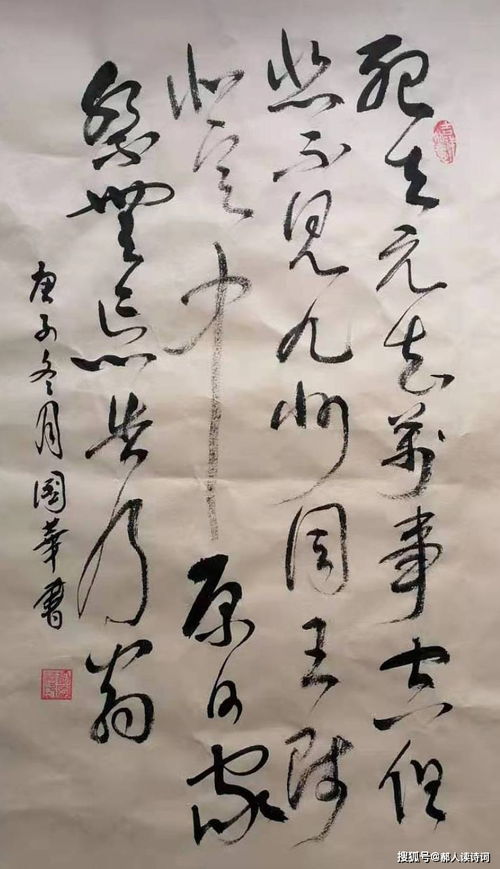 死去元知萬事空但
悲不见九州同王师
北定中原日家
祭無忘告乃翁
庚子冬月國華書
搜狐号@郝人读诗词